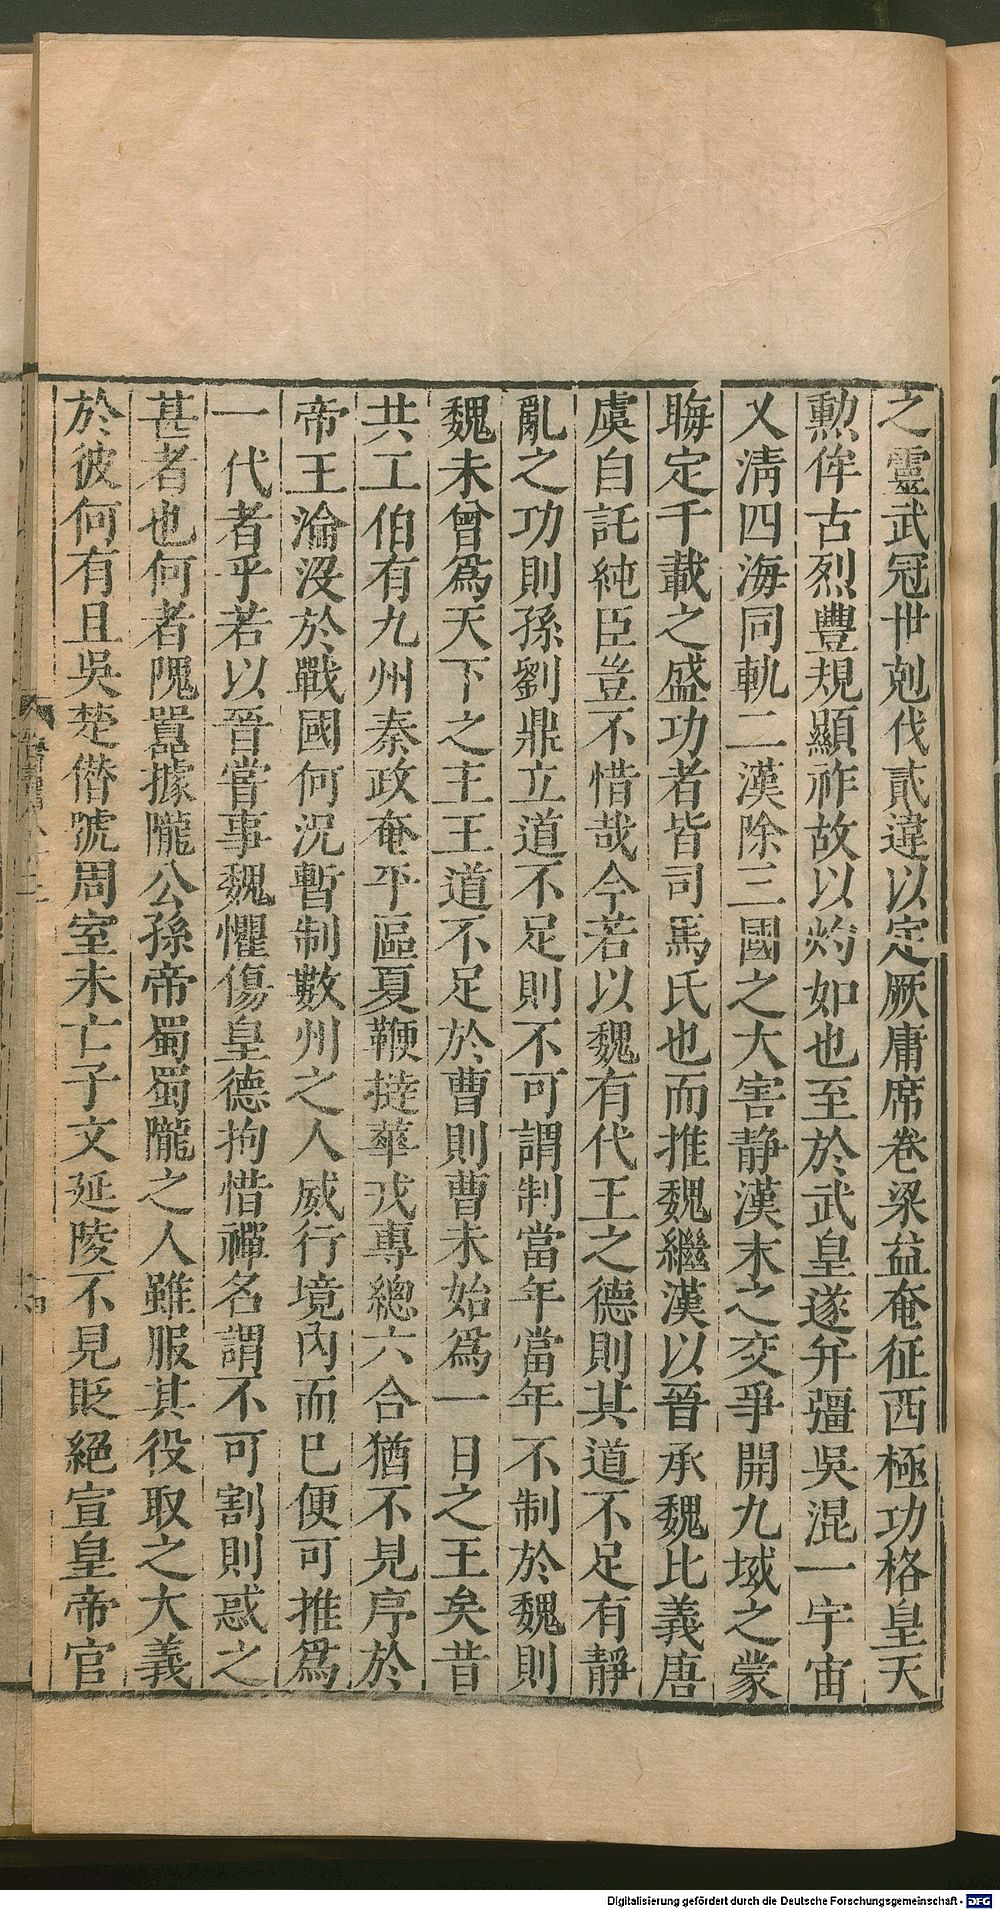 之靈武冠世剋伐貳違以定厥庸席卷梁益奄征西極功格皇天
勲侔古烈豐規顯祚故以灼如也至於武皇遂并彊吳混一宇宙
乂清四海同軌二漢除三國之大害靜漢末之交爭開九域之蒙
晦定千載之盛功者皆司馬氏也而推魏繼漢以晉承魏比義唐
虞自託純臣豈不惜哉今若以魏有代王之德則其道不足有靜
亂之功則孫劉鼎立道不足則不可謂制當年當年不制於魏則
魏未曾爲天下之主王道不足於曹則曹未始爲一日之王矣昔
共工伯有九州秦政奄平區夏鞭撻華戎專總六合猶不見序於
帝王淪沒於戰國何況暫制數州之人威行境內而已便可推爲
一代者乎若以晉嘗事魏懼傷皇德拘惜禪名謂不可割則惑之
甚者也何者隗囂據隴公孫帝蜀蜀隴之人雖服其役取之大義
於彼何有且吳楚僭號周室未亡子文延陵不見貶絕宣皇帝官
Digitalisierung gefördert durch die Deutsche Forschungsgemeinschaft - DFG